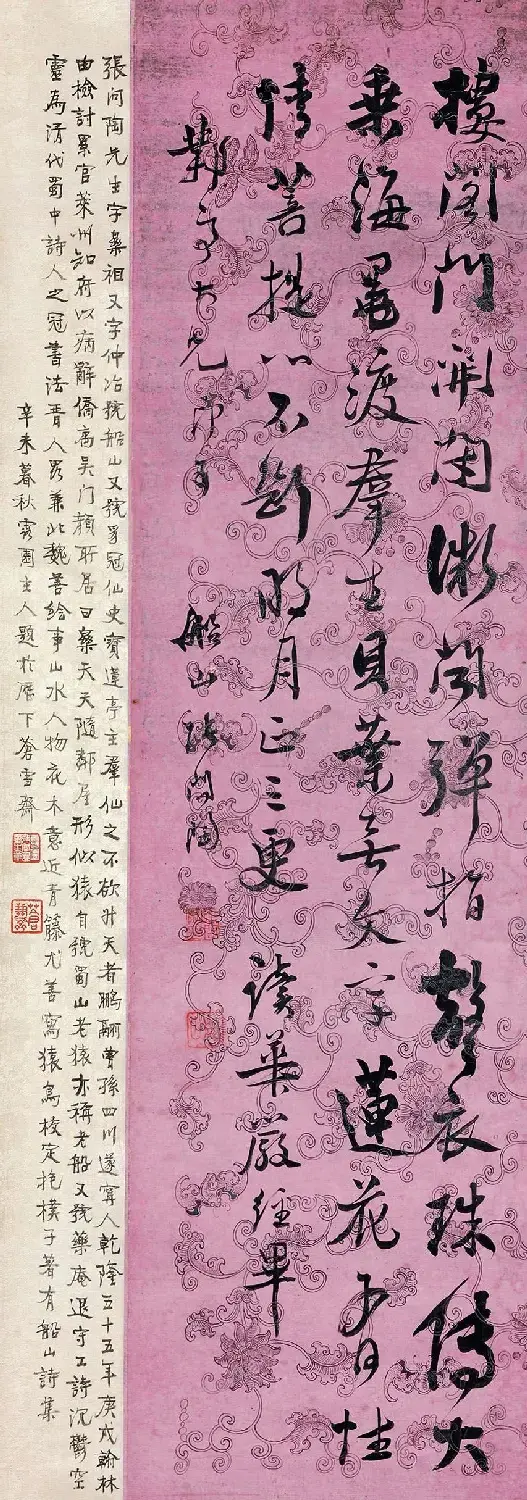 樓閣門開闔微聞彈指聲衣珠傳大
乘海墨渡羣生貝葉无文字蓮花有性
情菩提心不斷明月正三更 讀華嚴經畢
亭大兄 船山張問陶
張問陶先生字樂祖又字仲冶號船山又號蜀冠仙史寶蓮亭主羣仙之不欲升天者鵬翮曾孫四川遂寧人乾隆五十五年庚戌翰林
由檢討累官萊州知府以病辭僑寓吳門顏所居曰樂天天隨鄰屋形似猿自號蜀山老猿亦稱老船又號藥庵退守工詩沉鬱空
靈為清代蜀中詩人之冠書法晉人另兼北魏善繪事山水人物花木意近青藤尤善寫猿為校定抱樸子著有船山詩集
辛未暮秋雲園主人題於歷下蒼雪齋